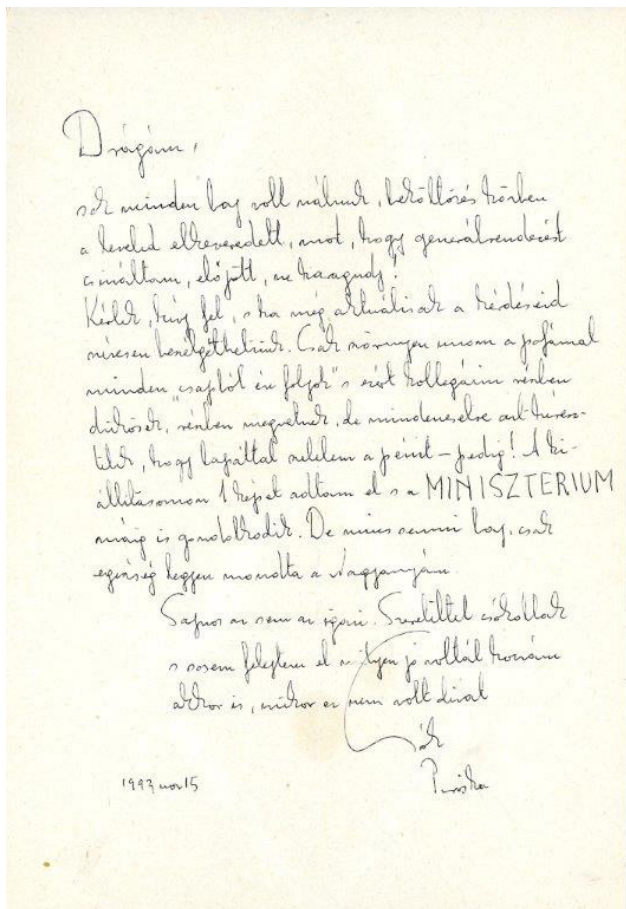 Drágám,
sok minden baj volt nálunk, beköltözés közben
a leveled elkeveredett, most, hogy generálrendezést
csináltam, előjött, ne haragudj!
Kérlek, hívj fel, s ha még aktuálisak a kérdéseid
szívesen beszélgethetünk. Csak szörnyen unom a pofámat
minden "csapból én folyok" s ezért kollegáim részben
dühösek, részben megvetnek, de mindenesetre azt
hogy lapáttal szedem a pénzt – pedig! A ki-
állításomon 1 képet adtam el s a MINISZTERIUM
máig is gondolkodik. De nincs semmi baj, csak
egészség legyen mondta a Nagyanyám.
Sajnos az sem az igazi. Szeretettel csókollak
s sosem felejtem el milyen jó voltál hozzám
akkor is, mikor ez nem volt divat
sók
Piroska
1993 nov 15